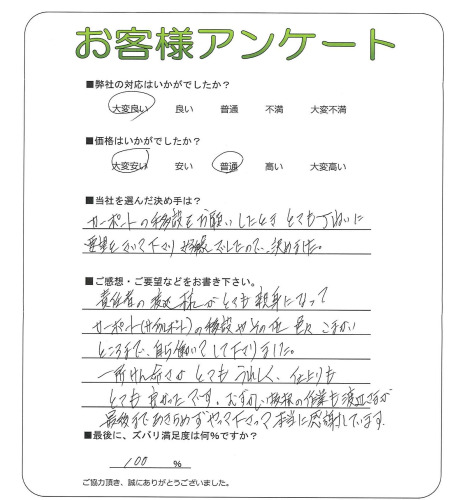 お客様アンケート
■弊社の対応はいかがでしたか？
大変良い 良い 普通 不満 大変不満
■価格はいかがでしたか？
大変安い 安い 普通 高い 大変高い
■当社を選んだ決め手は？
カーポートの移設をお願いしたとき とても丁ねいに
要望をきいて下さり 好感でしたので、決めました。
■ご感想・ご要望などをお書き下さい。
責任者の さんがとても親身になって
カーポート(サイクルポート)の移設やその他 色々 こまかい
ところまで、自ら働いてして下さりました。
一所けん命さが とても うれしく、仕上りも
とても 良かったです。むずかしい の作業も さんが
最後まであきらめず やって下さって 本当に感謝しています。
■最後に、ズバリ満足度は何％ですか？
100 ％
ご協力頂き、誠にありがとうございました。